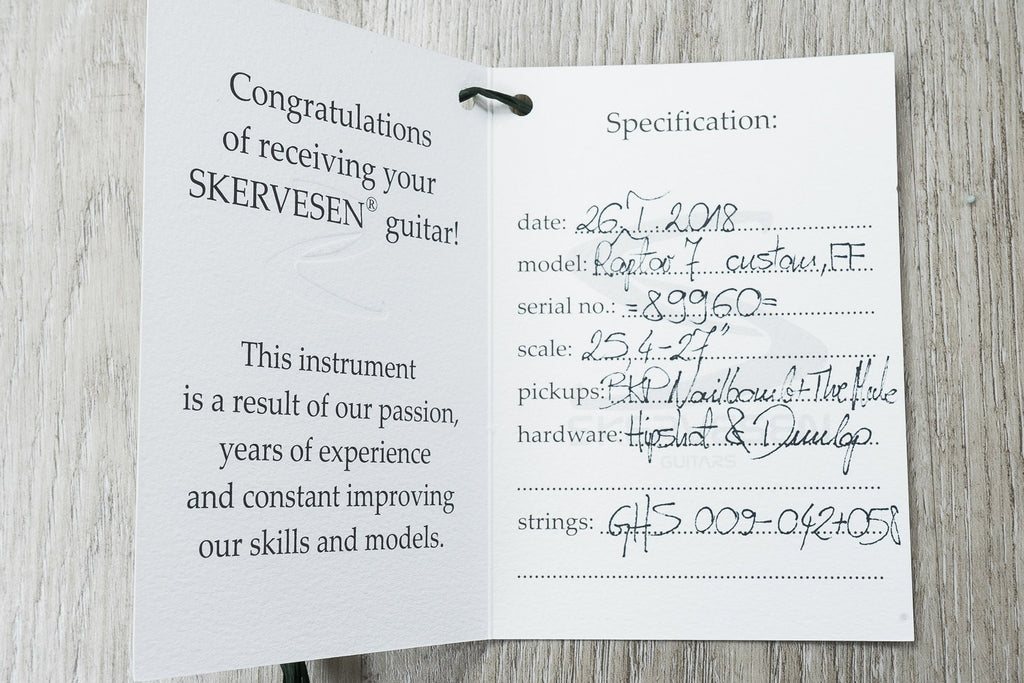 Congratulations
of receiving your
SKERVESEN® guitar!
This instrument
is a result of our passion,
years of experience
and constant improving
our skills and models.
Specification:
date: 26. I. 2018
model: Raptor 7 custom, FF
serial no.: =89960=
scale: 25,4-27"
pickups: BKP Nailbomb+The Mule
hardware: Hipshot & Dunlop
GUITARS
strings: GHS 009-042+058